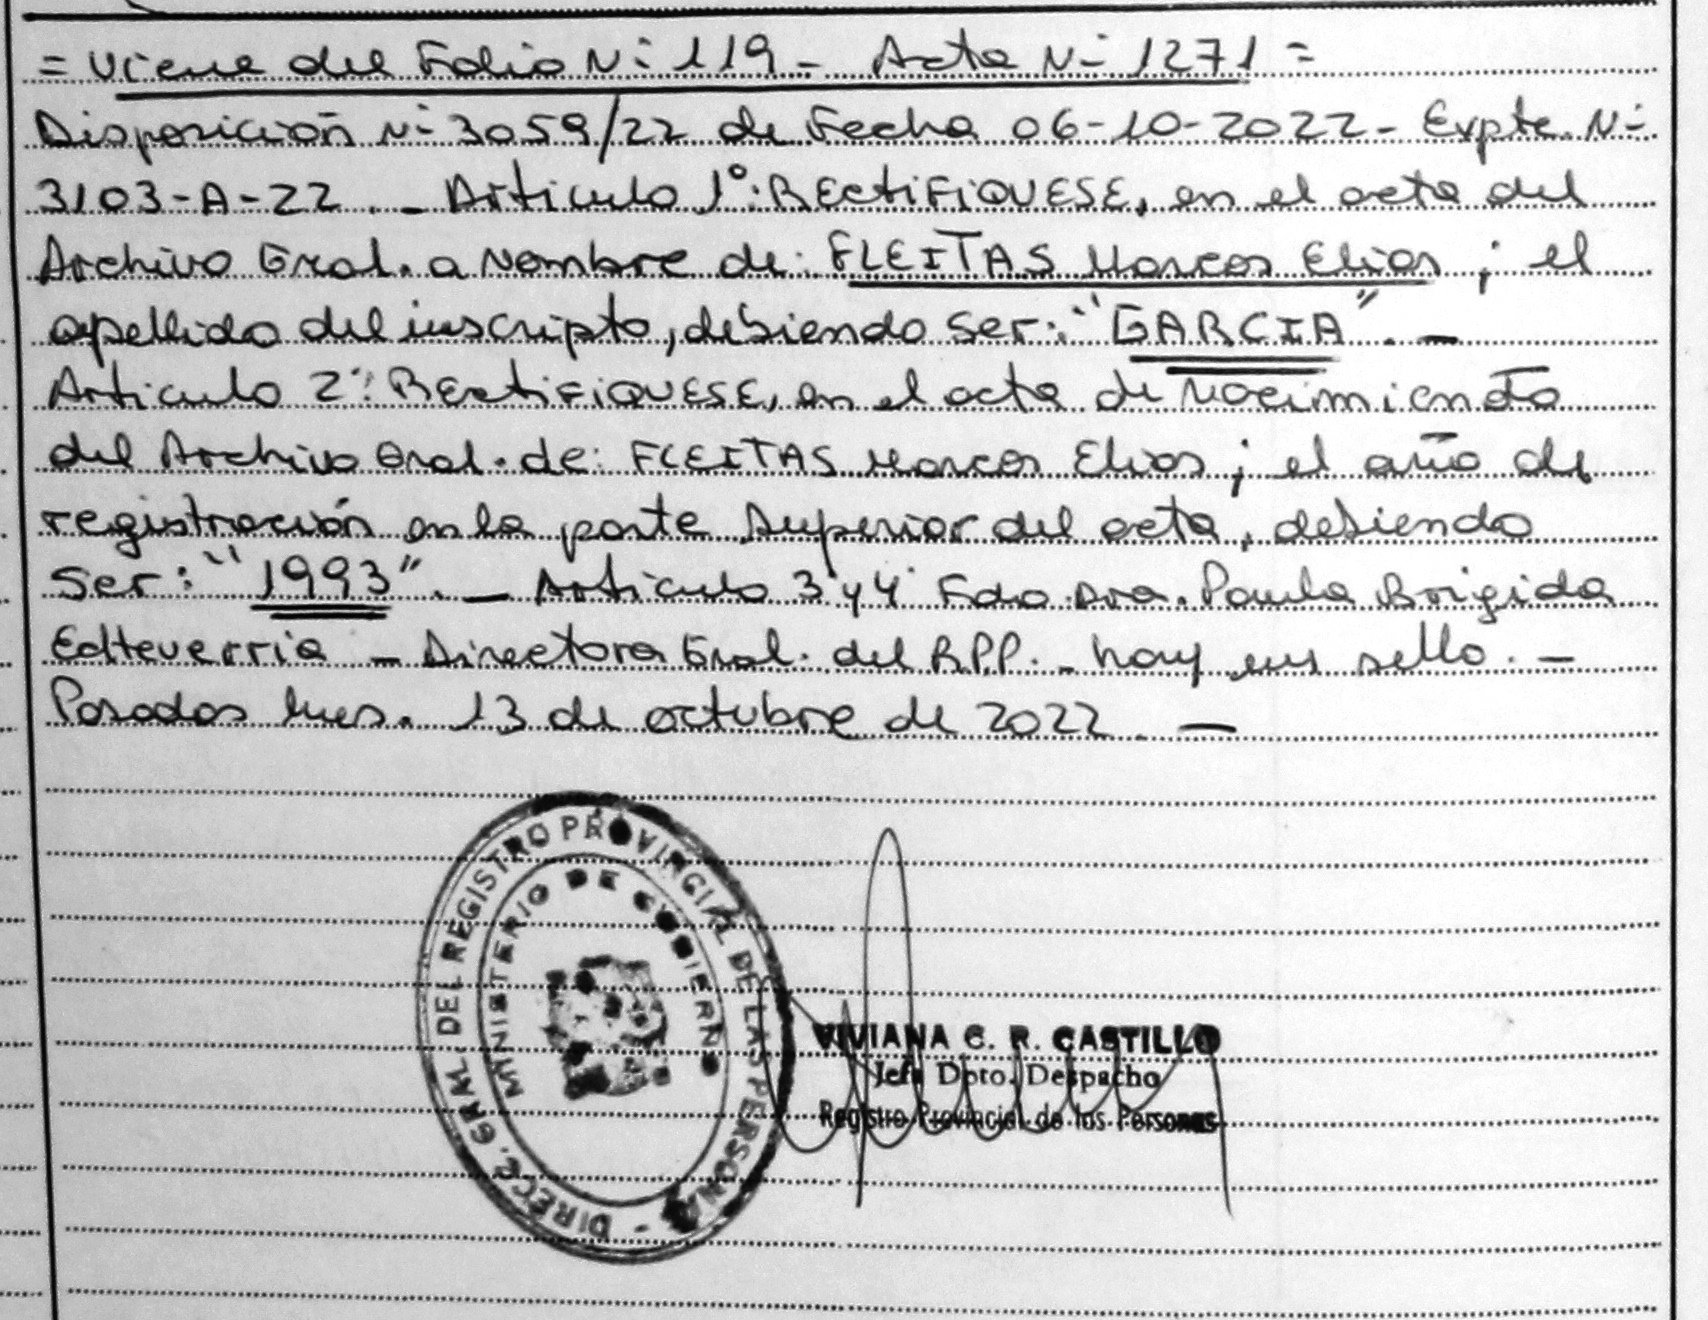 = Viene del Folio N: 119 - Acta N- 1271 =
Disposición N- 3059/22 de Fecha 06-10-2022 - Expte. N-
3103-A-22. - Articulo 1°: RECtiFiQUESE, en el acta del
Archivo Gral. a Nombre de: FLEITAS Marcos Elias ; el
apellido del inscripto, debiendo ser: "GARCIA". -
Articulo 2°: RECtiFiQUESE, en el acta de Nacimiento
del Archivo Gral. de: FLEITAS Marcos Elias ; el año de
registración en la parte Superior del acta, debiendo
ser: "1993". - Articulo 3° y 4° Fdo Dra. Paula Brigida
Edteverria - Directora Gral. del RPP. - hay un sello. -
Posadas Mnes. 13 de octubre de 2022. -
DIRECC. GRAL. DEL REGISTRO PROVINCIAL DE LAS PERSONAS -
MINISTERIO DE GOBIERNO
VIVIANA C. R. CASTILLO
Jefa Dpto. Despacho
Registro Provincial de las Personas